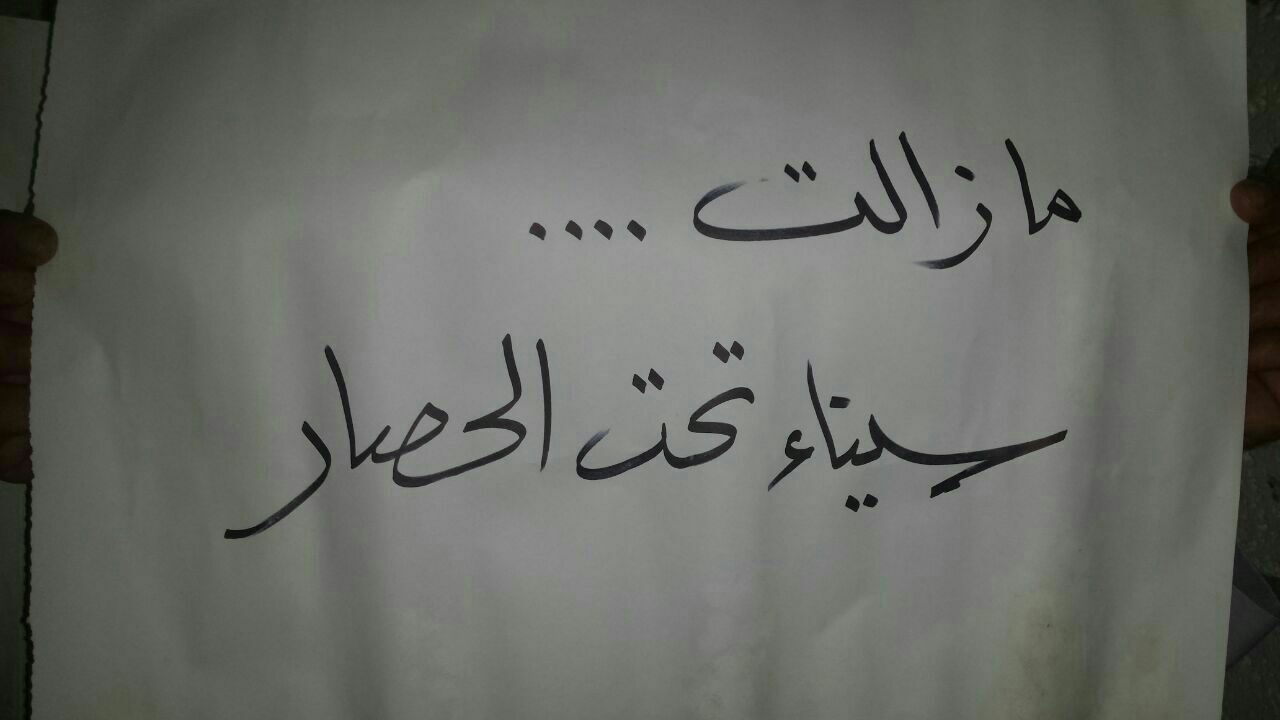 ما زالت ....
سيناء تحت الحصار